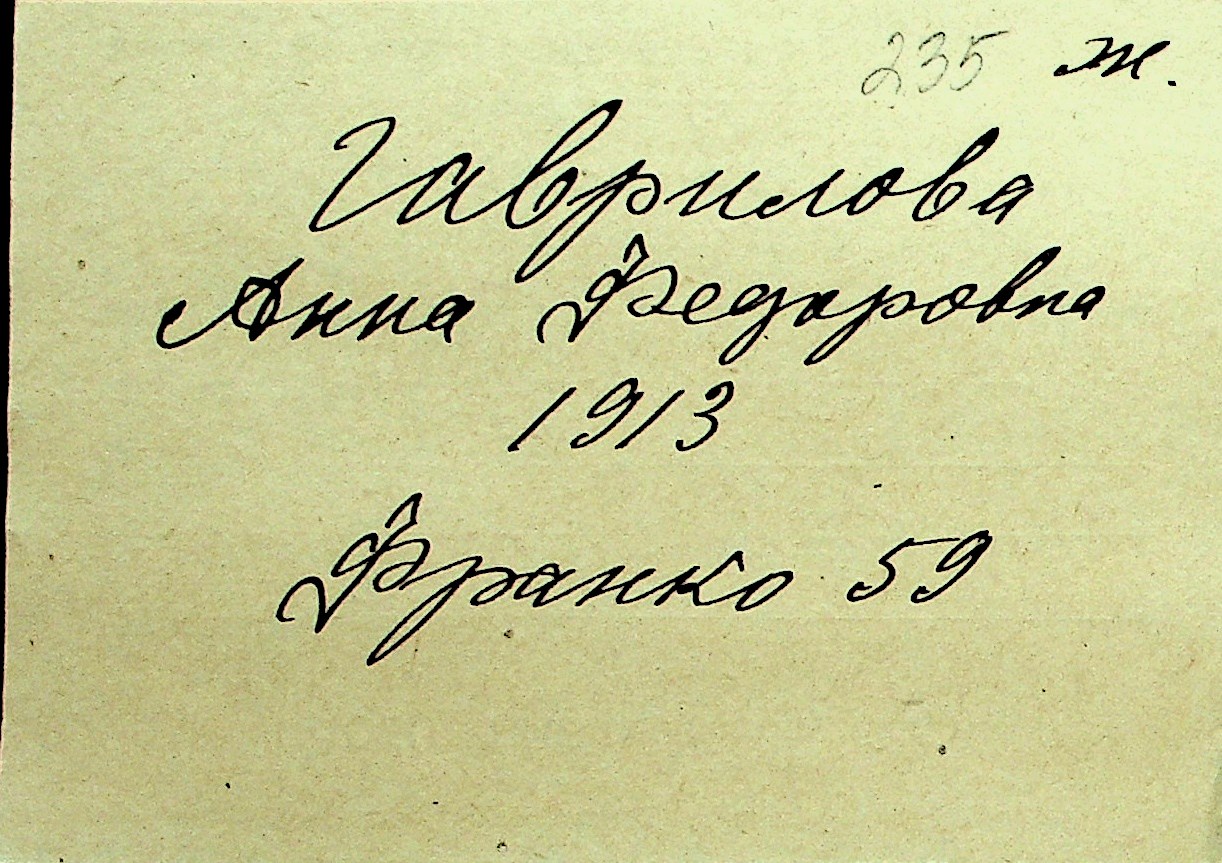 235 ж.
Гаврилова
Анна Федоровна
1913
Франко 59